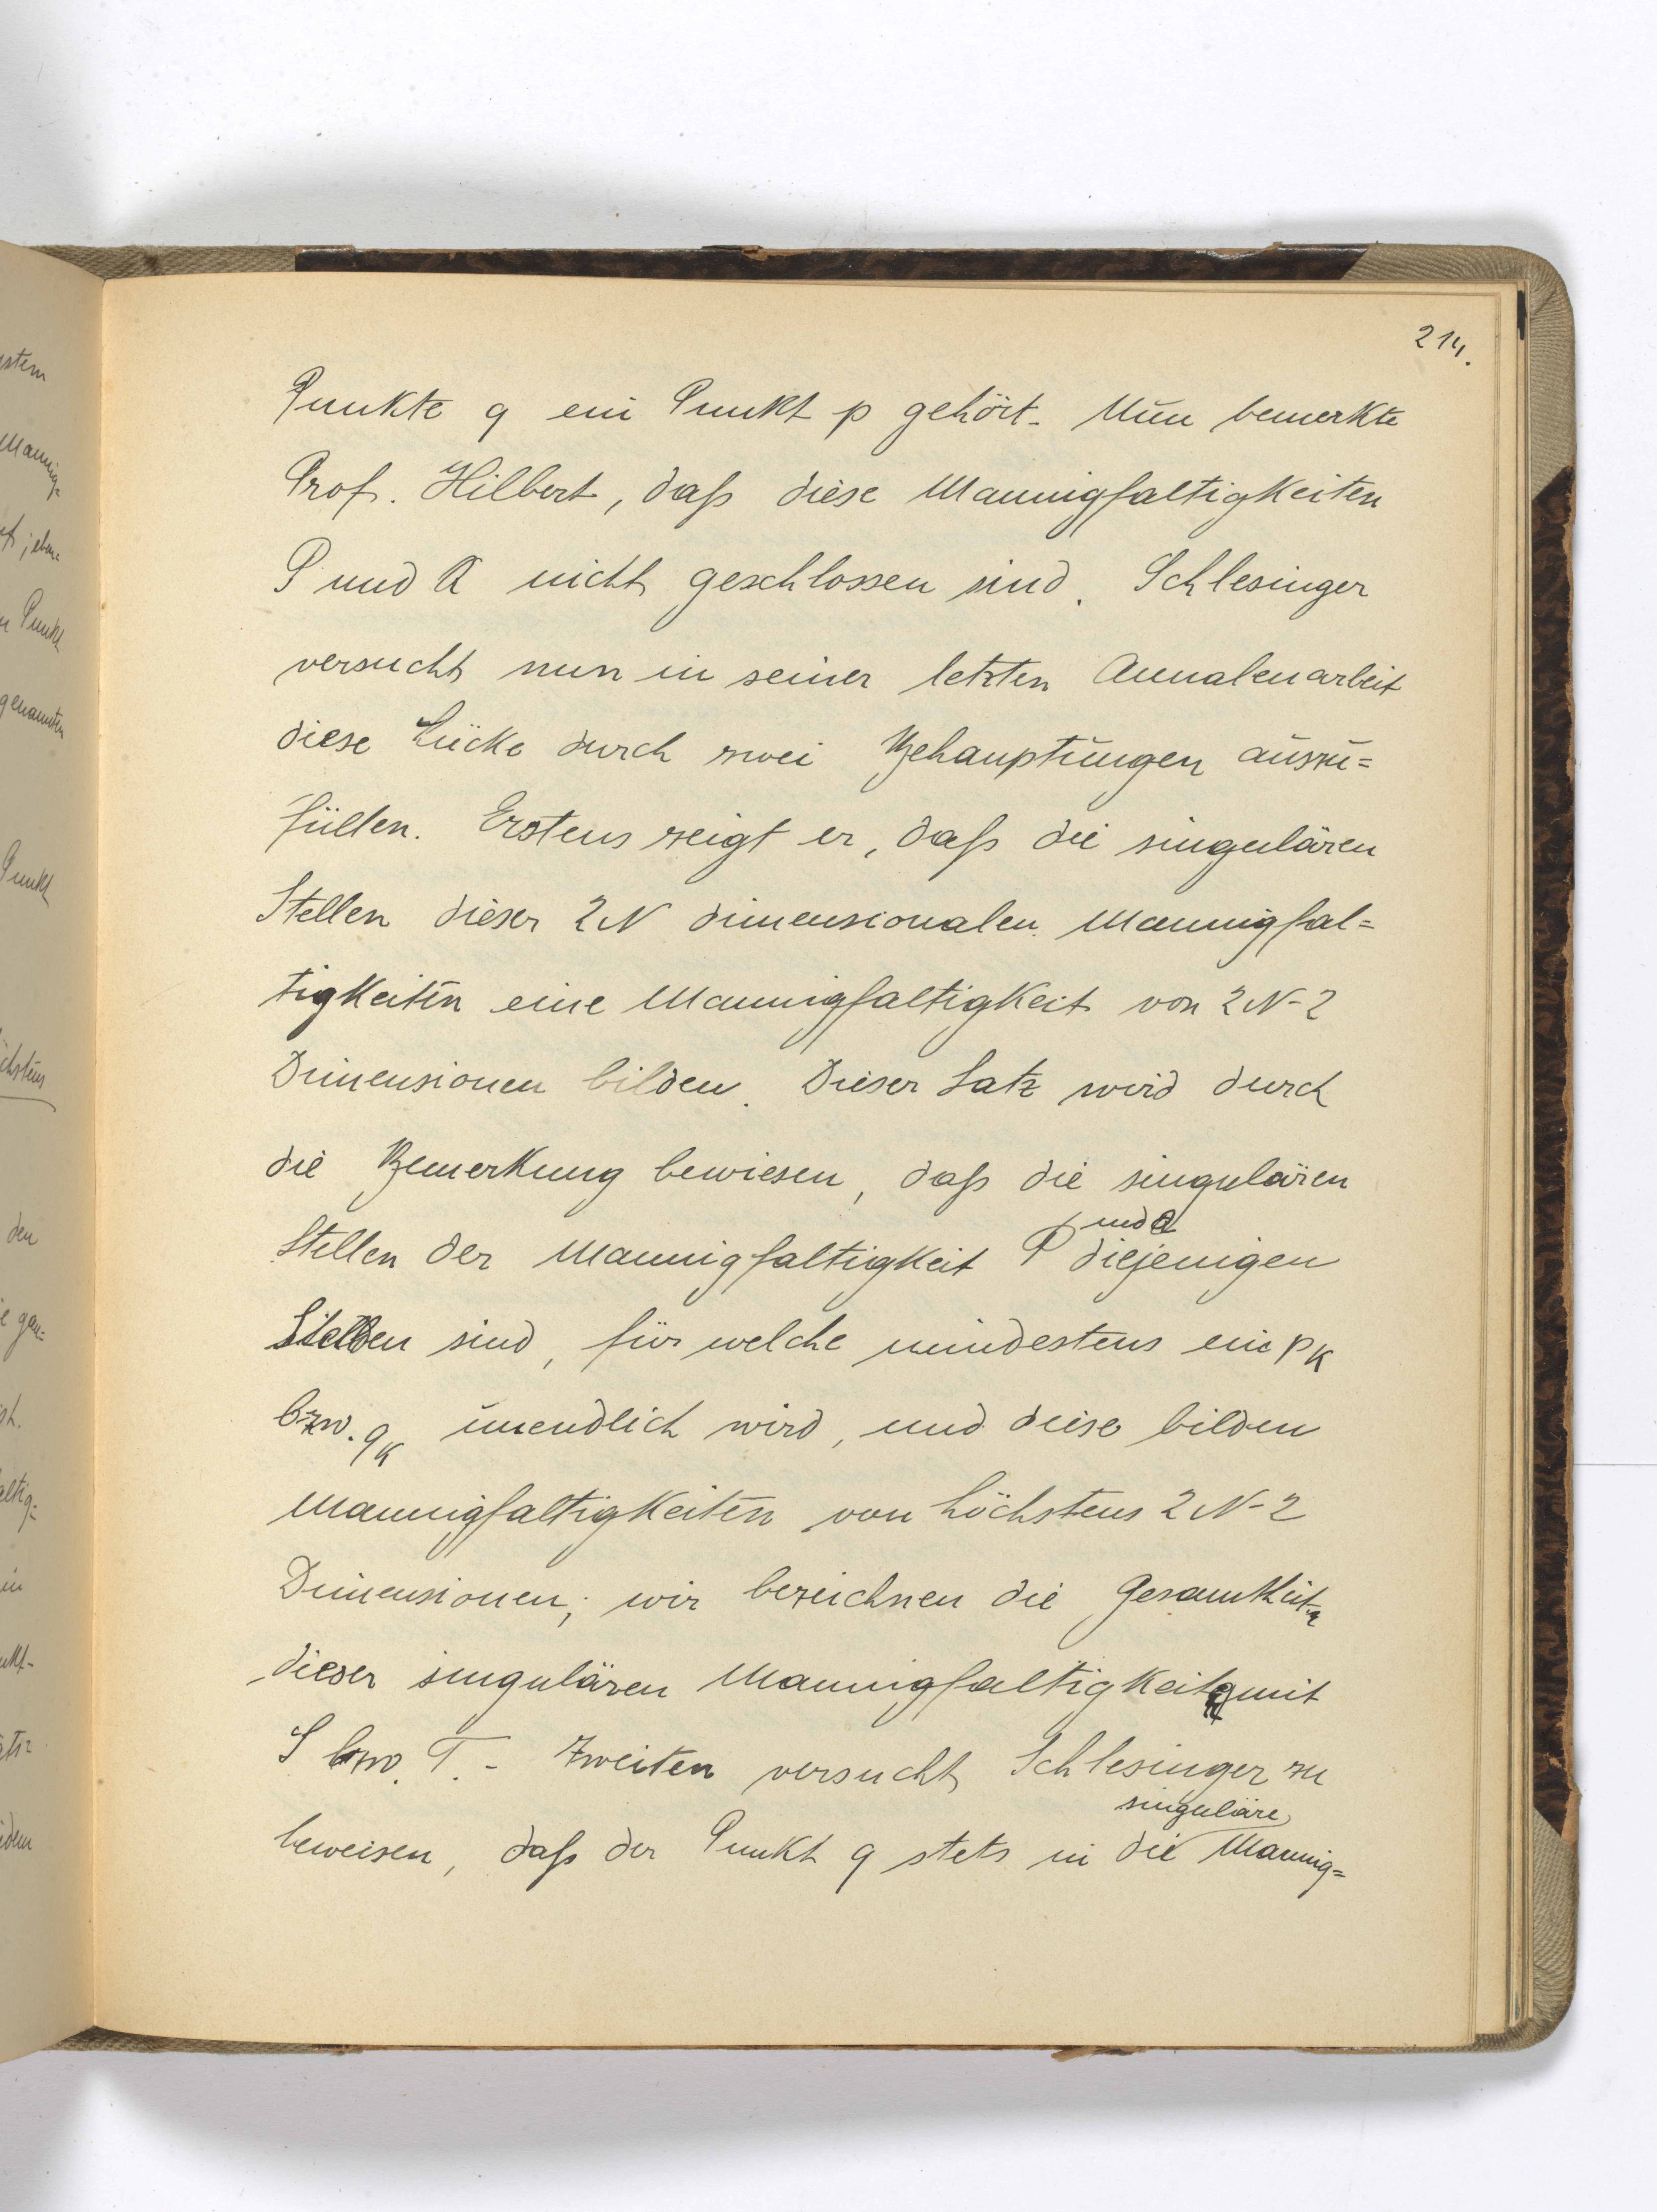 214.
Punkte q ein Punkt p gehört. Nun bemerkte
Prof. Hilbert, daß diese Mannigfaltigkeiten
P und Q nicht geschlossen sind. Schlesinger
versucht nun in seiner letzten Annalenarbeit
diese Lücke durch zwei Behauptungen auszu=
füllen. Erstens zeigt er, daß die singulären
Stellen dieser 2N dimensionalen Mannigfal=
tigkeiten eine Mannigfaltigkeit von 2N-2
Dimensionen bilden. Dieser Satz wird durch
die Bemerkung bewiesen, daß die singulären
und Q
Stellen der Mannigfaltigkeit P diejenigen
Stellen sind, für welche mindestens ein pK
bzw. qK unendlich wird, und diese bilden
Mannigfaltigkeiten von höchstens 2N-2
Dimensionen; wir bezeichnen die Gesamtheiten
dieser singulären Mannigfaltigkeiten mit
S bzw. T. - Zweiten versucht Schlesinger zu
singuläre
beweisen, daß der Punkt q stets in die Mannig=
stem
Mannig=
Punkt
genannten
Punkt
den
in